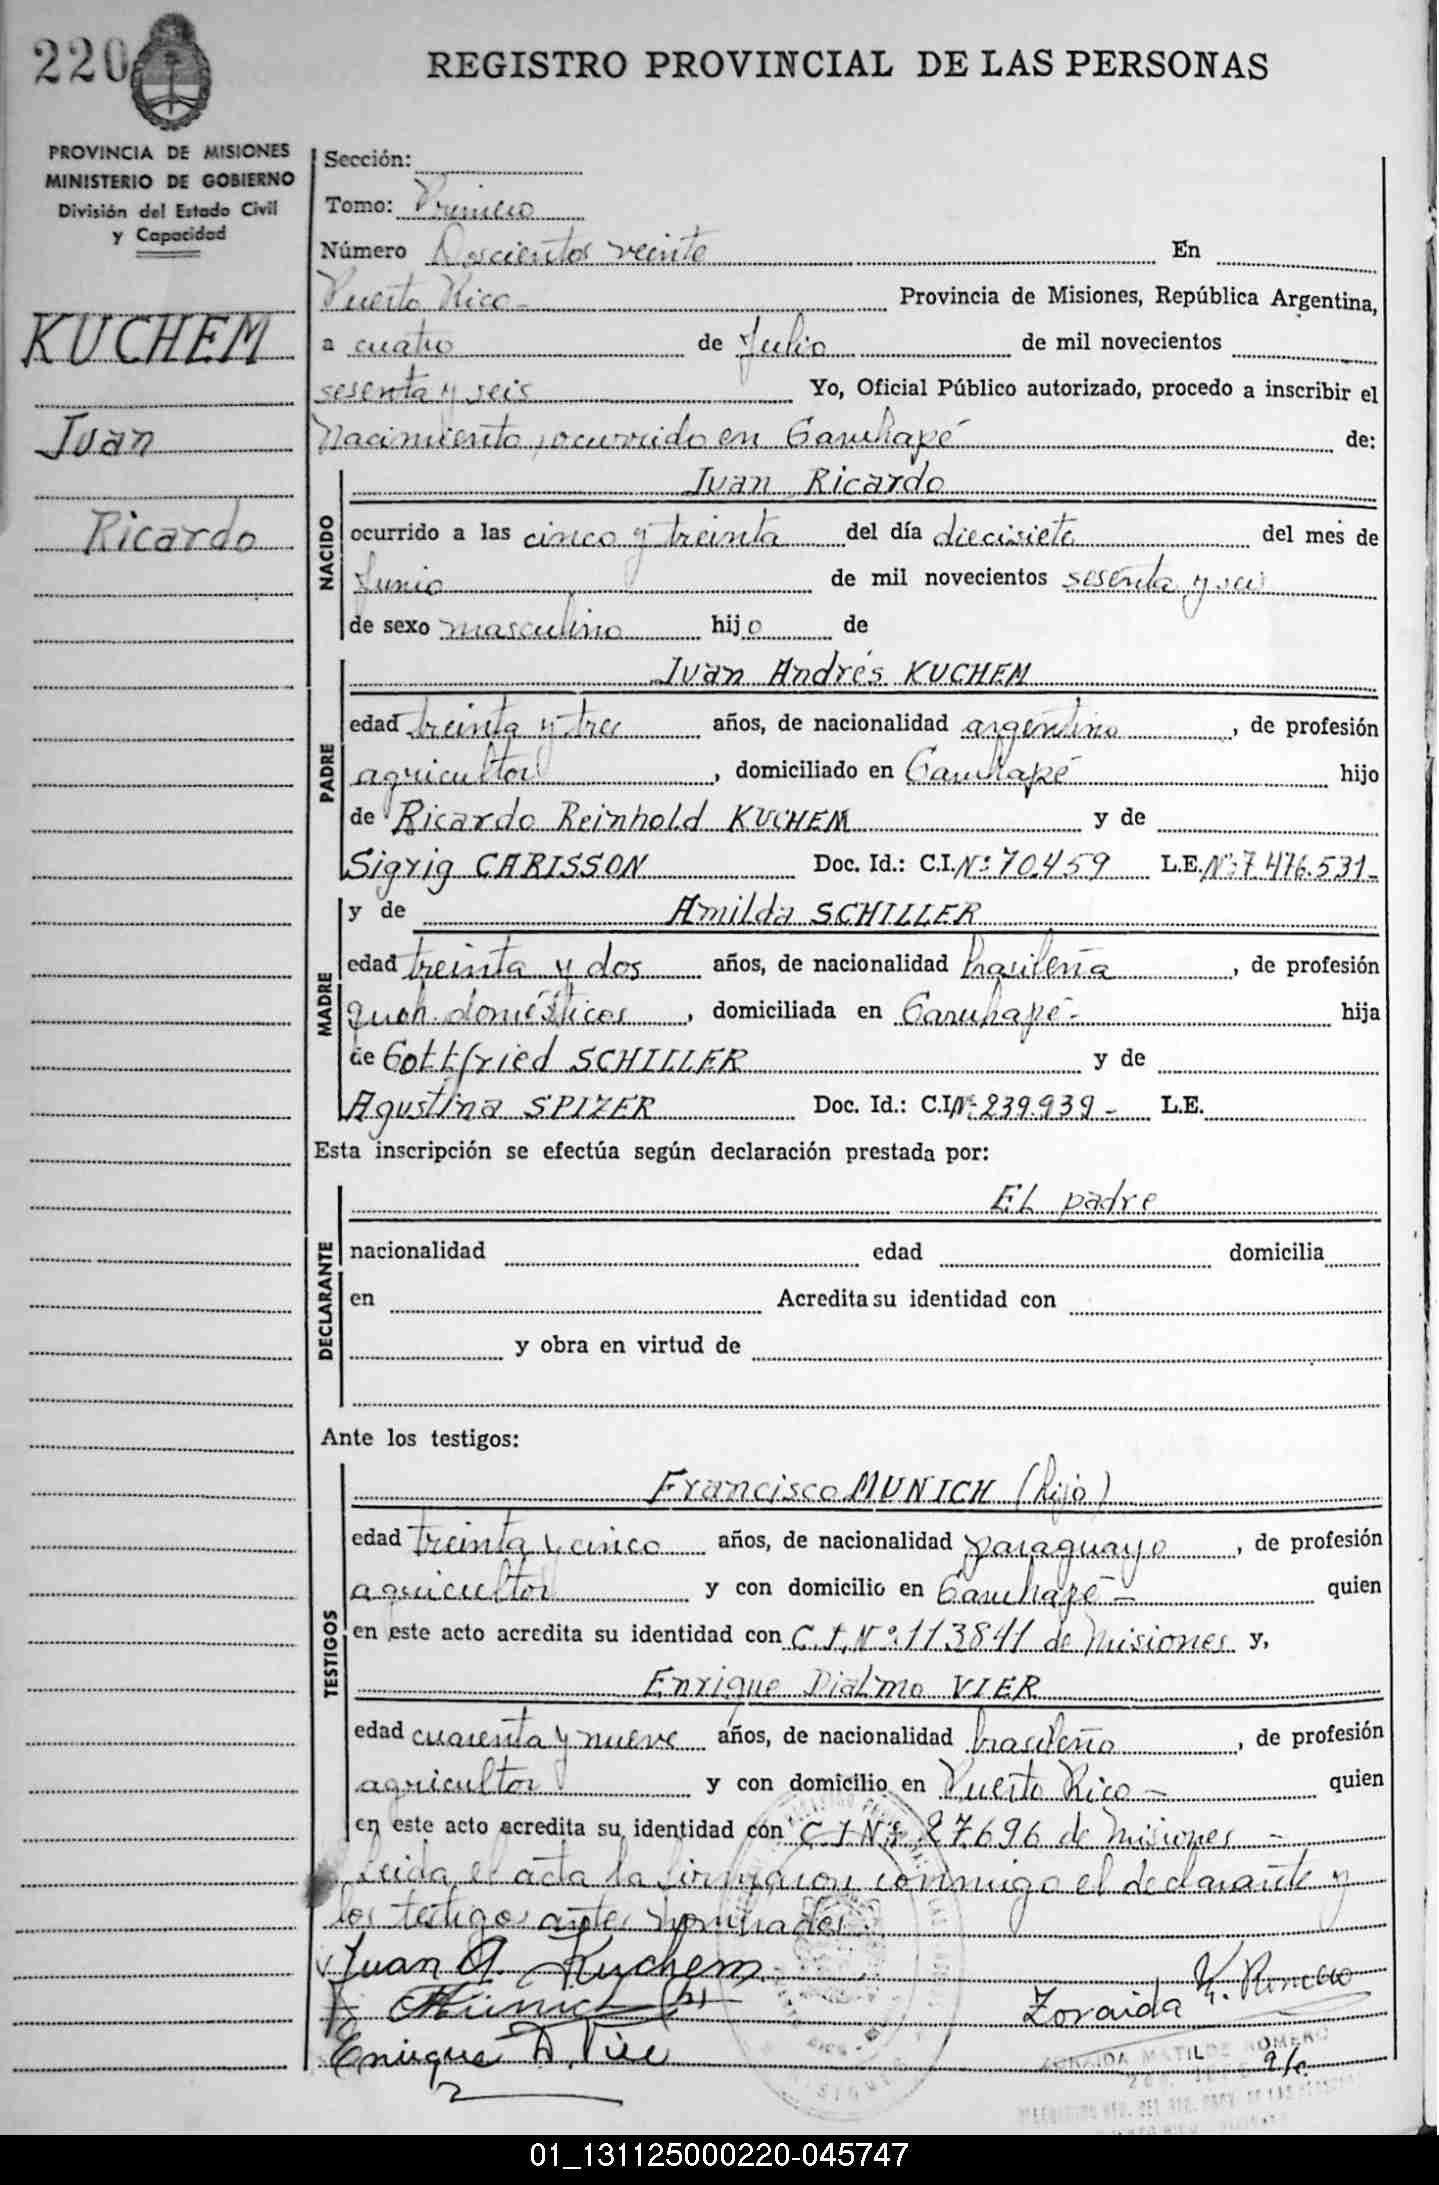 220
REGISTRO PROVINCIAL DE LAS PERSONAS
PROVINCIA DE MISIONES
MINISTERIO DE GOBIERNO
División del Estado Civil
y Capacidad
KUCHEM
Juan
Ricardo
Sección:
Tomo: Primero
Número Doscientos veinte En
Puerto Rico- Provincia de Misiones, República Argentina,
a cuatro de Julio de mil novecientos
sesenta y seis Yo, Oficial Público autorizado, procedo a inscribir el
Nacimiento, ocurrido en Garuhapé de:
NACIDO
Juan Ricardo
ocurrido a las cinco y treinta del día diecisiete del mes de
Junio de mil novecientos sesenta y seis
de sexo masculino hijo de
PADRE
Juan Andrés KUCHEM
edad treinta y tres años, de nacionalidad argentino, de profesión
agricultor, domiciliado en Garuhapé hijo
de Ricardo Reinhold KUCHEM y de
Sigrig CARISSON Doc. Id.: C.I. Nº: 70.459 L.E. Nº: 7.476.531-
MADRE
y de Amilda SCHILLER
edad treinta y dos años, de nacionalidad brasileña, de profesión
queh. domésticos, domiciliada en Garuhapé- hija
de Gottfried SCHILLER y de
Agustina SPIZER Doc. Id.: C.I. Nº: 239.939- L.E.
Esta inscripción se efectúa según declaración prestada por:
DECLARANTE
EL padre
nacionalidad edad domicilia
en Acredita su identidad con
y obra en virtud de
Ante los testigos:
TESTIGOS
Francisco MUNICH (hijo)
edad treinta y cinco años, de nacionalidad paraguayo, de profesión
agricultor y con domicilio en Garuhapé- quien
en este acto acredita su identidad con C.I. Nº: 113841 de Misiones y,
Enrique Dialmo VIER
edad cuarenta y nueve años, de nacionalidad brasileño, de profesión
agricultor y con domicilio en Puerto Rico- quien
en este acto acredita su identidad con C I Nº: 27696 de Misiones-
Leida el acta la firmaron conmigo el declarante y
los testigos antes nombrados.
Juan A. Kuchem
Zoraida M. Romero
Enrique D. Vier
ZORAIDA MATILDE ROMERO
01_131125000220-045747